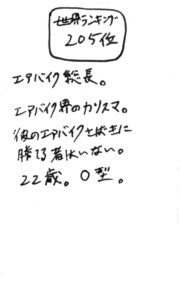 世界ランキング
205位
エアバイク総長。
エアバイク界のカリスマ。
彼のエアバイクさばきに
勝てる者はいない。
22歳。O型。